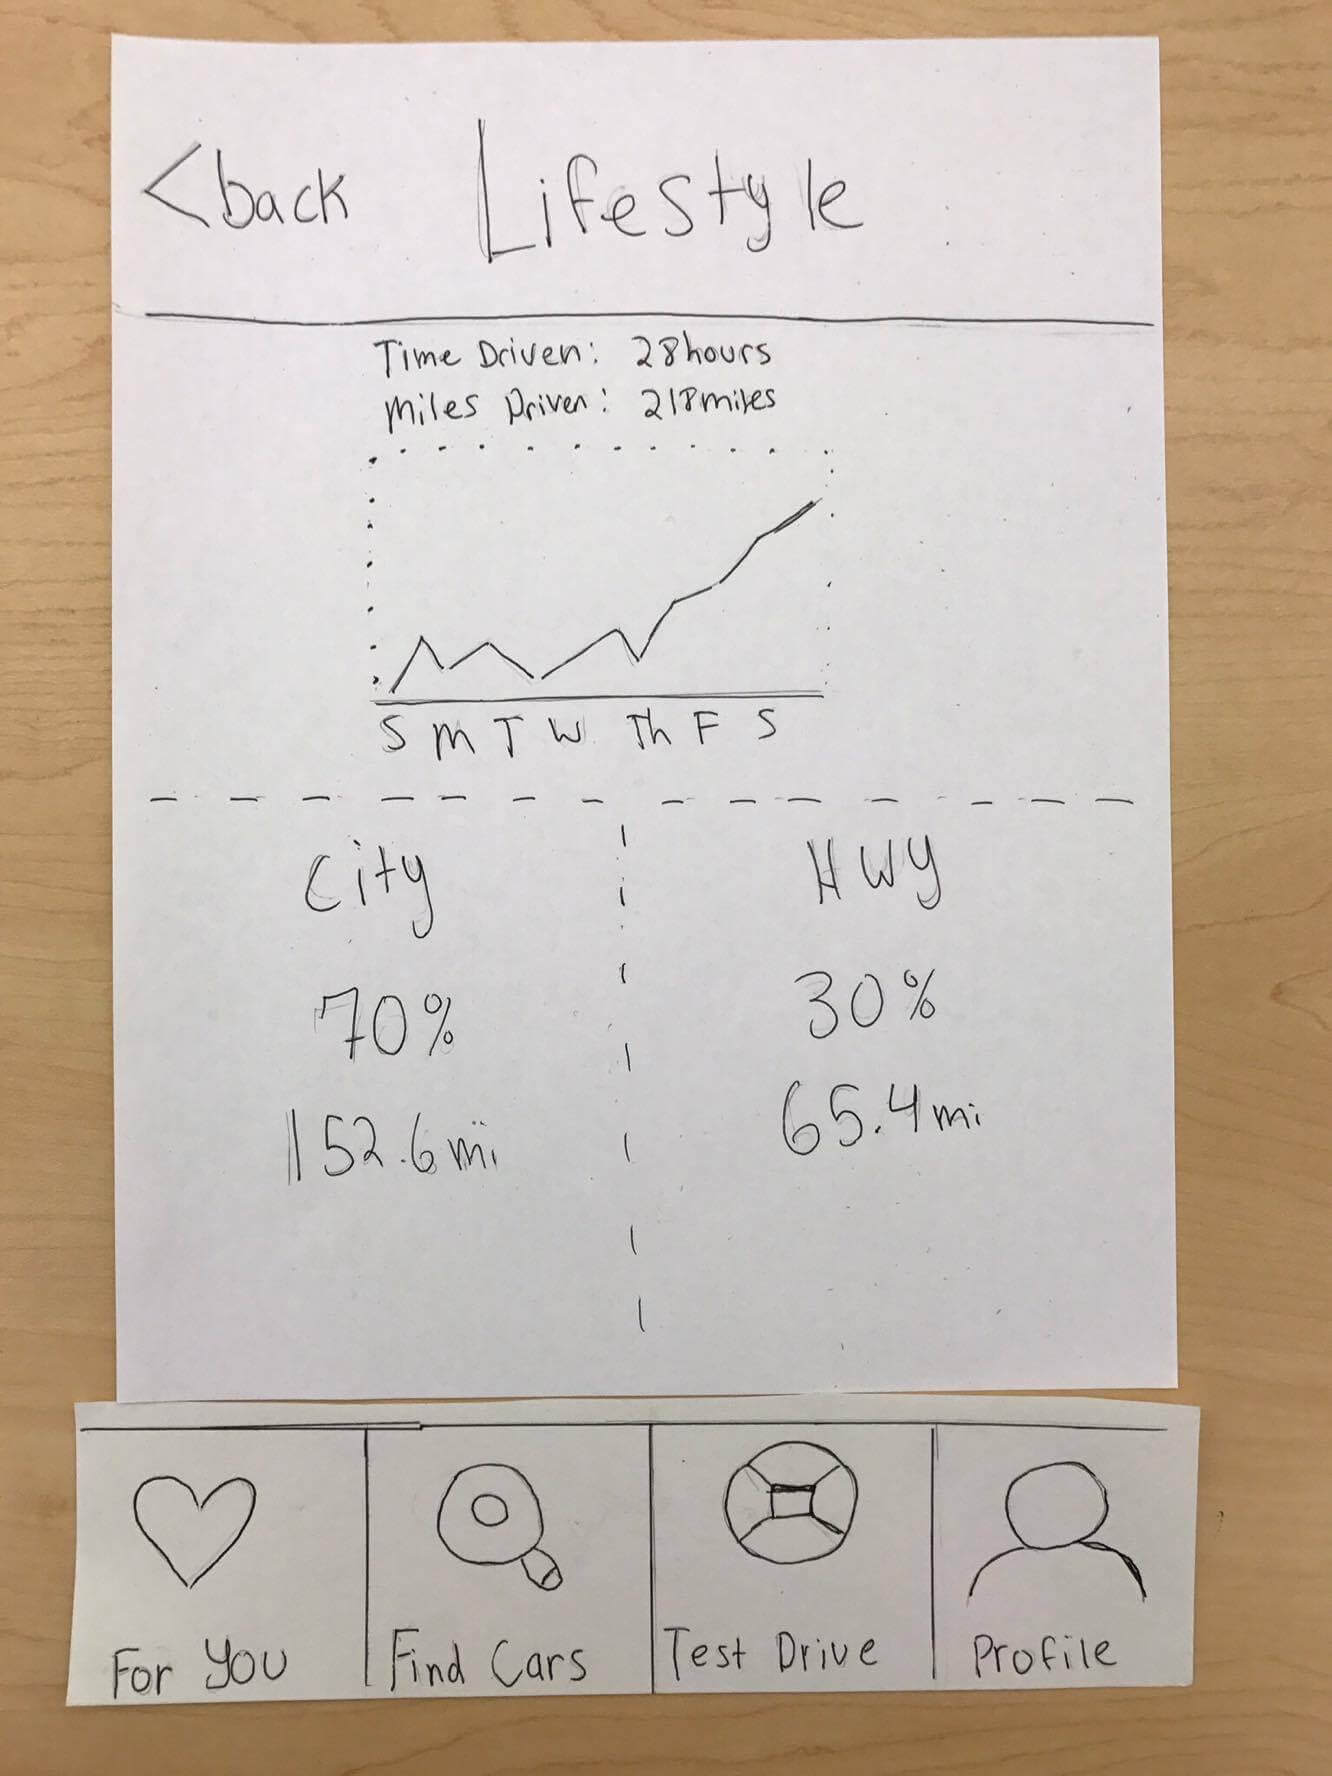 <back Lifestyle
Time Driven: 28hours
Miles Driven: 218miles
S M T W Th F S
City Hwy
70% 30%
152.6 mi 65.4 mi
For You Find Cars Test Drive Profile